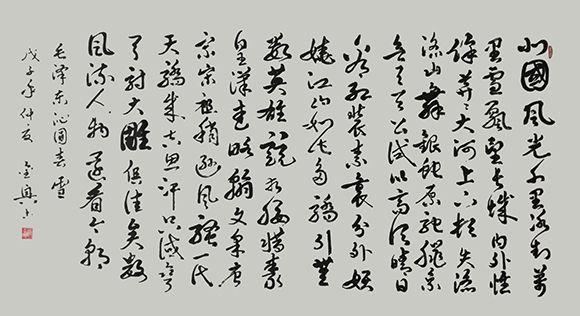 北國風光千里冰封萬
里雪飄望長城內外惟
餘莽莽大河上下頓失滔
滔山舞銀蛇原馳臘象
欲與天公試比高須晴日
看紅裝素裹分外妖
嬈江山如此多嬌引無
數英雄競折腰惜秦
皇漢武略輸文采唐
宗宋祖稍遜風騷一代
天驕成吉思汗只識彎
弓射大雕俱往矣數
風流人物還看今朝
毛澤東沁園春雪
戊子年仲夏